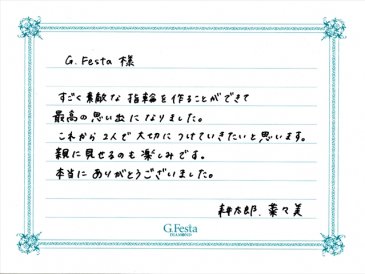 G.Festa 様
すごく素敵な指輪を作ることができて
最高の思い出になりました。
これから2人で大切につけていきたいと思います。
親に見せるのも楽しみです。
本当にありがとうございました。
耕太郎、菜々美
G.Festa
DIAMOND